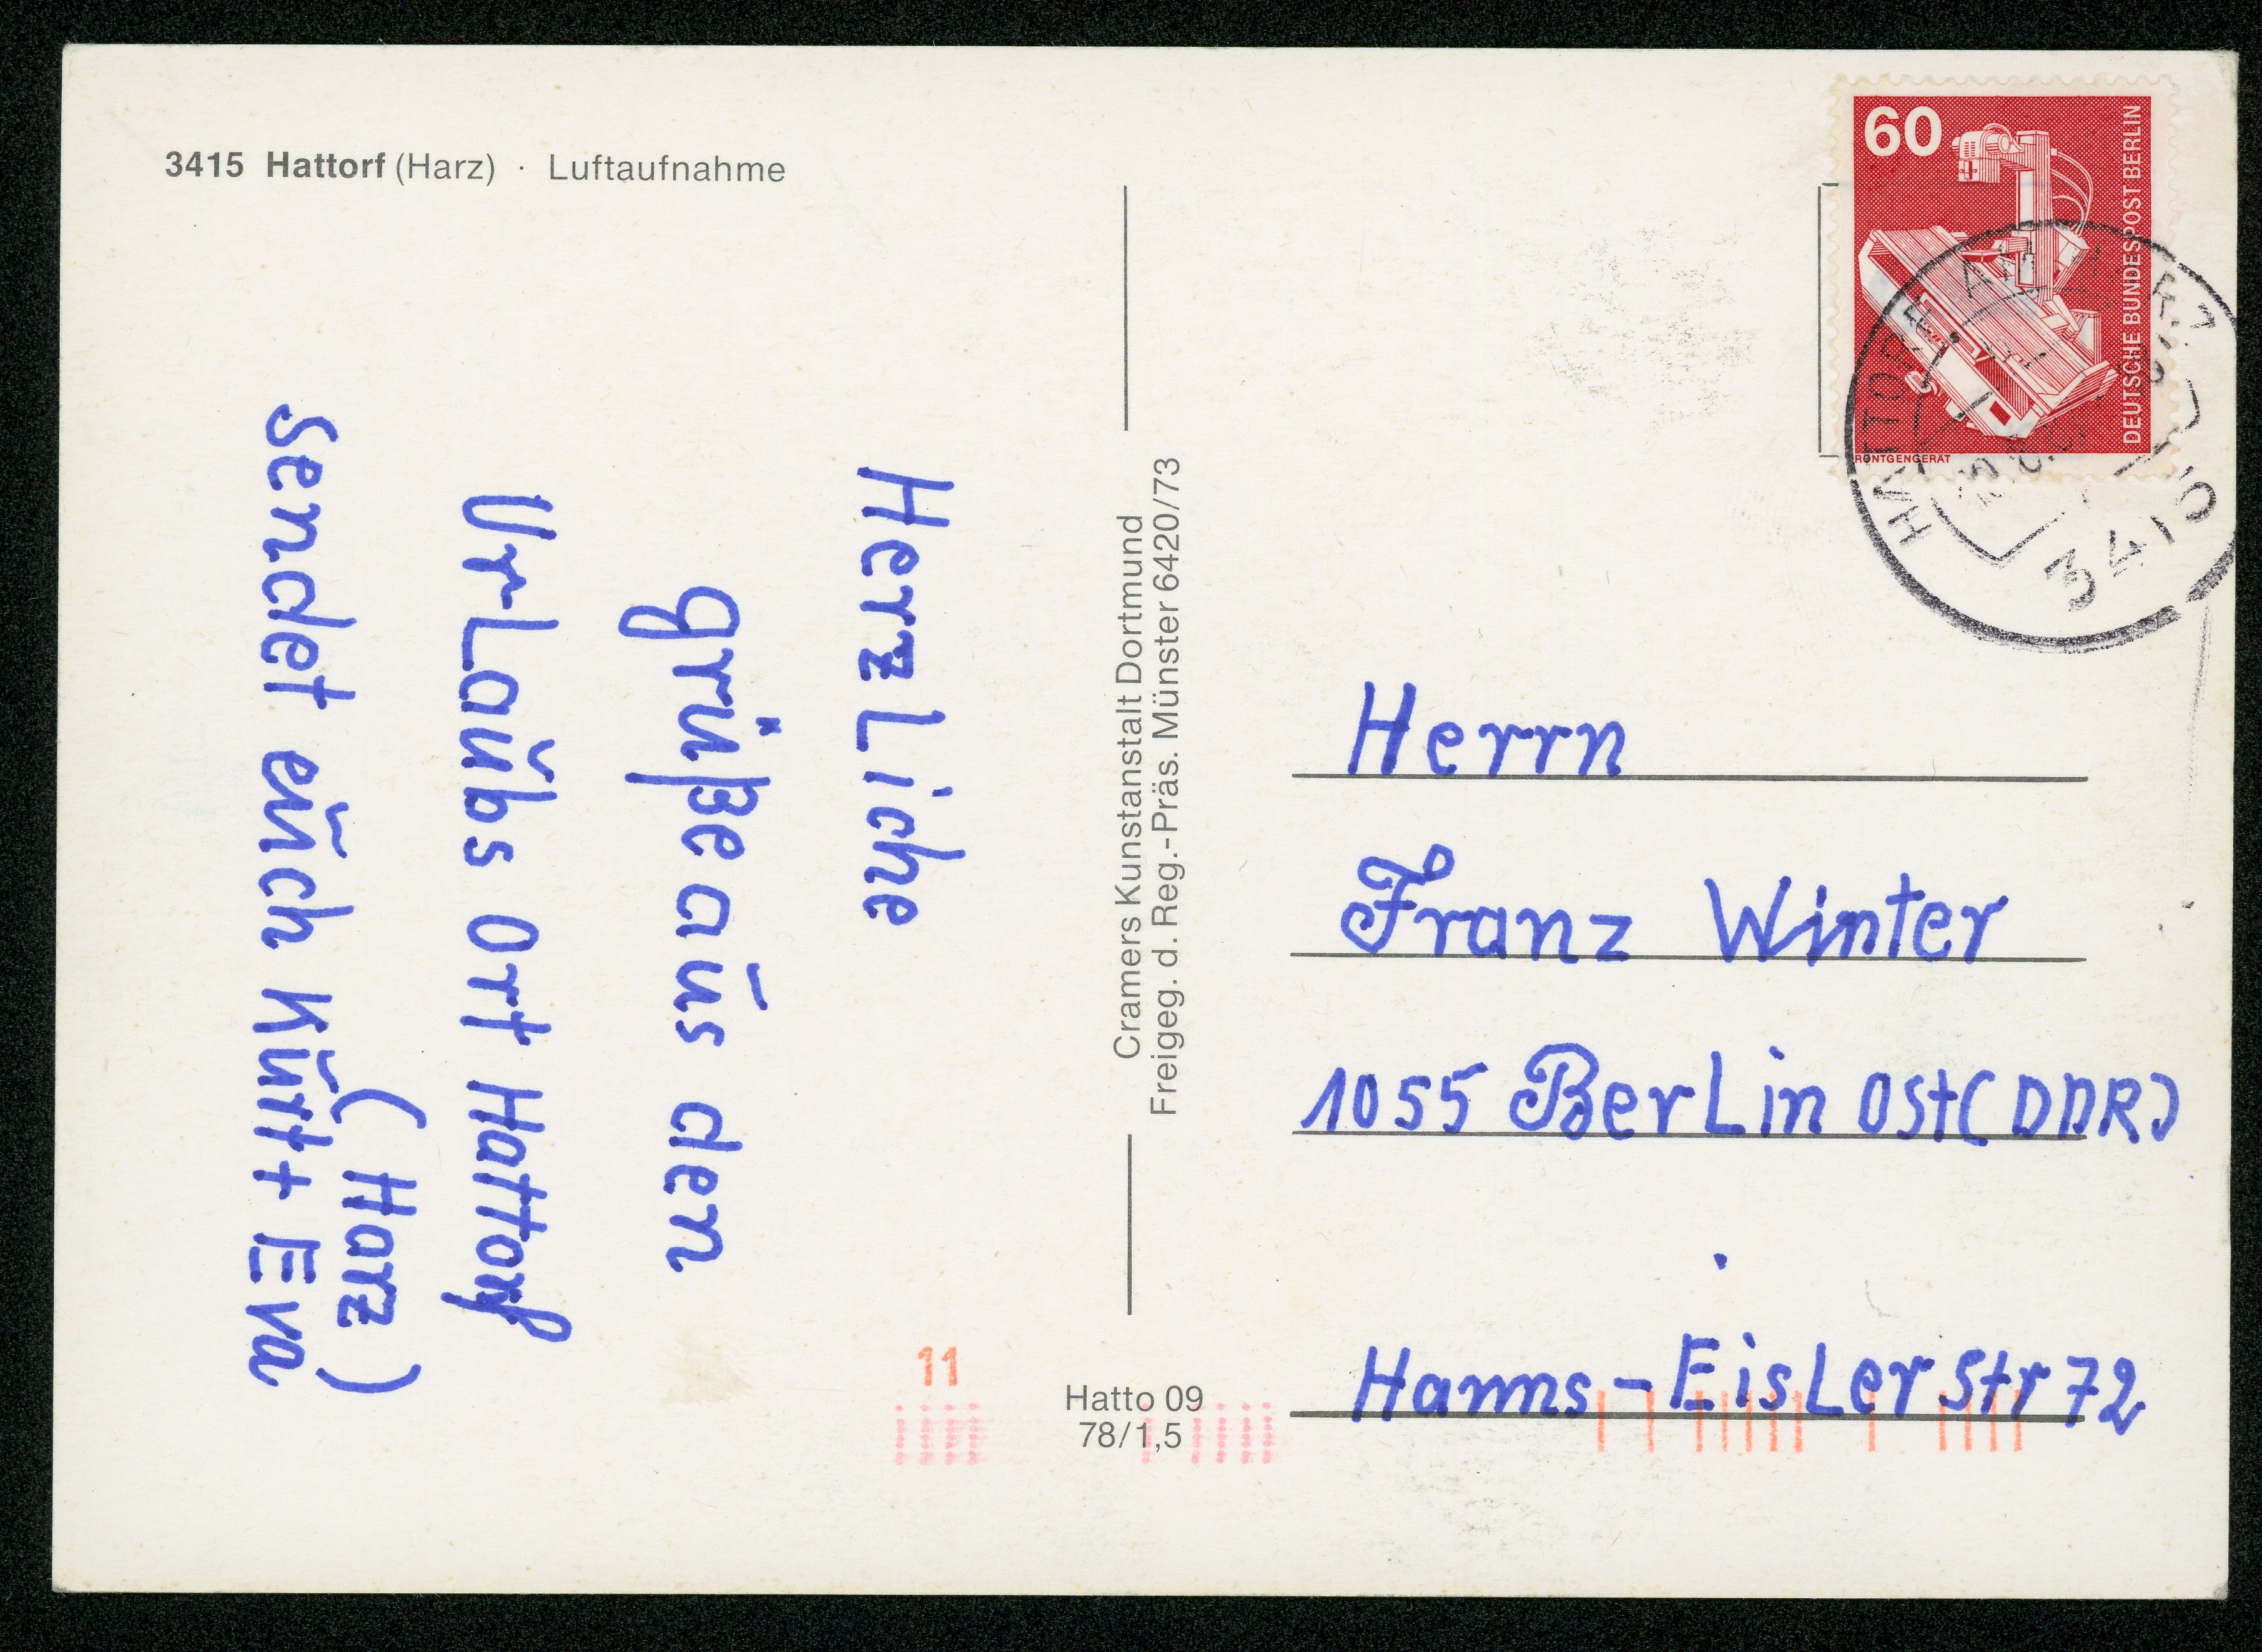 3415 Hattorf (Harz) · Luftaufnahme
HerzLiche
grüße aus den
UrLaubs Ort Hattorf
(Harz)
sendet euch Kurt + Eva
Cramers Kunstanstalt Dortmund
Freigeg. d. Reg.-Präs. Münster 6420/73
Hatto 09
78/1,5
11
60
DEUTSCHE BUNDESPOST BERLIN
RÖNTGENGERÄT
HATTORF AM HARZ
Herrn
Franz Winter
1055 BerLin Ost (DDR)
Hanns-EisLer Str 72